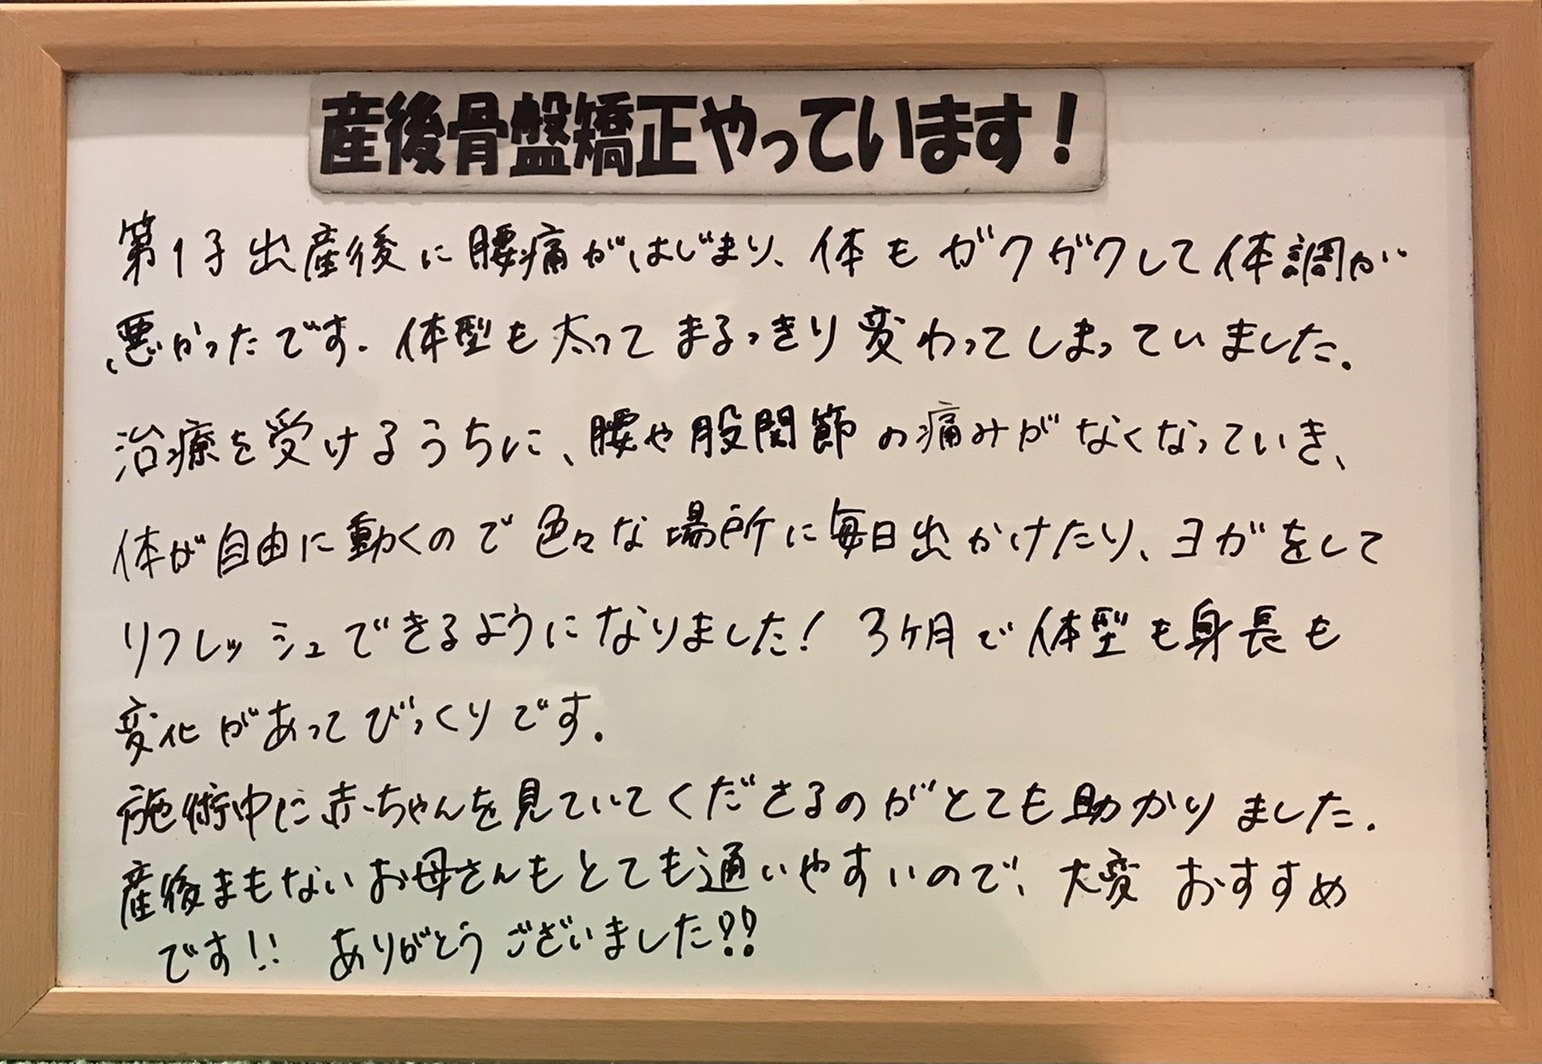 産後骨盤矯正やっています！
第1子出産後に腰痛がはじまり、体もガクガクして体調が
悪かったです。体型も太ってまるっきり変わってしまっていました。
治療を受けるうちに、腰や股関節の痛みがなくなっていき、
体が自由に動くので色々な場所に毎日出かけたり、ヨガをして
リフレッシュできるようになりました！3ヶ月で体型も身長も
変化があってびっくりです。
施術中に赤ちゃんを見ていてくださるのがとても助かりました。
産後まもないお母さんもとても通いやすいので、大変おすすめ
です!! ありがとうございました!!